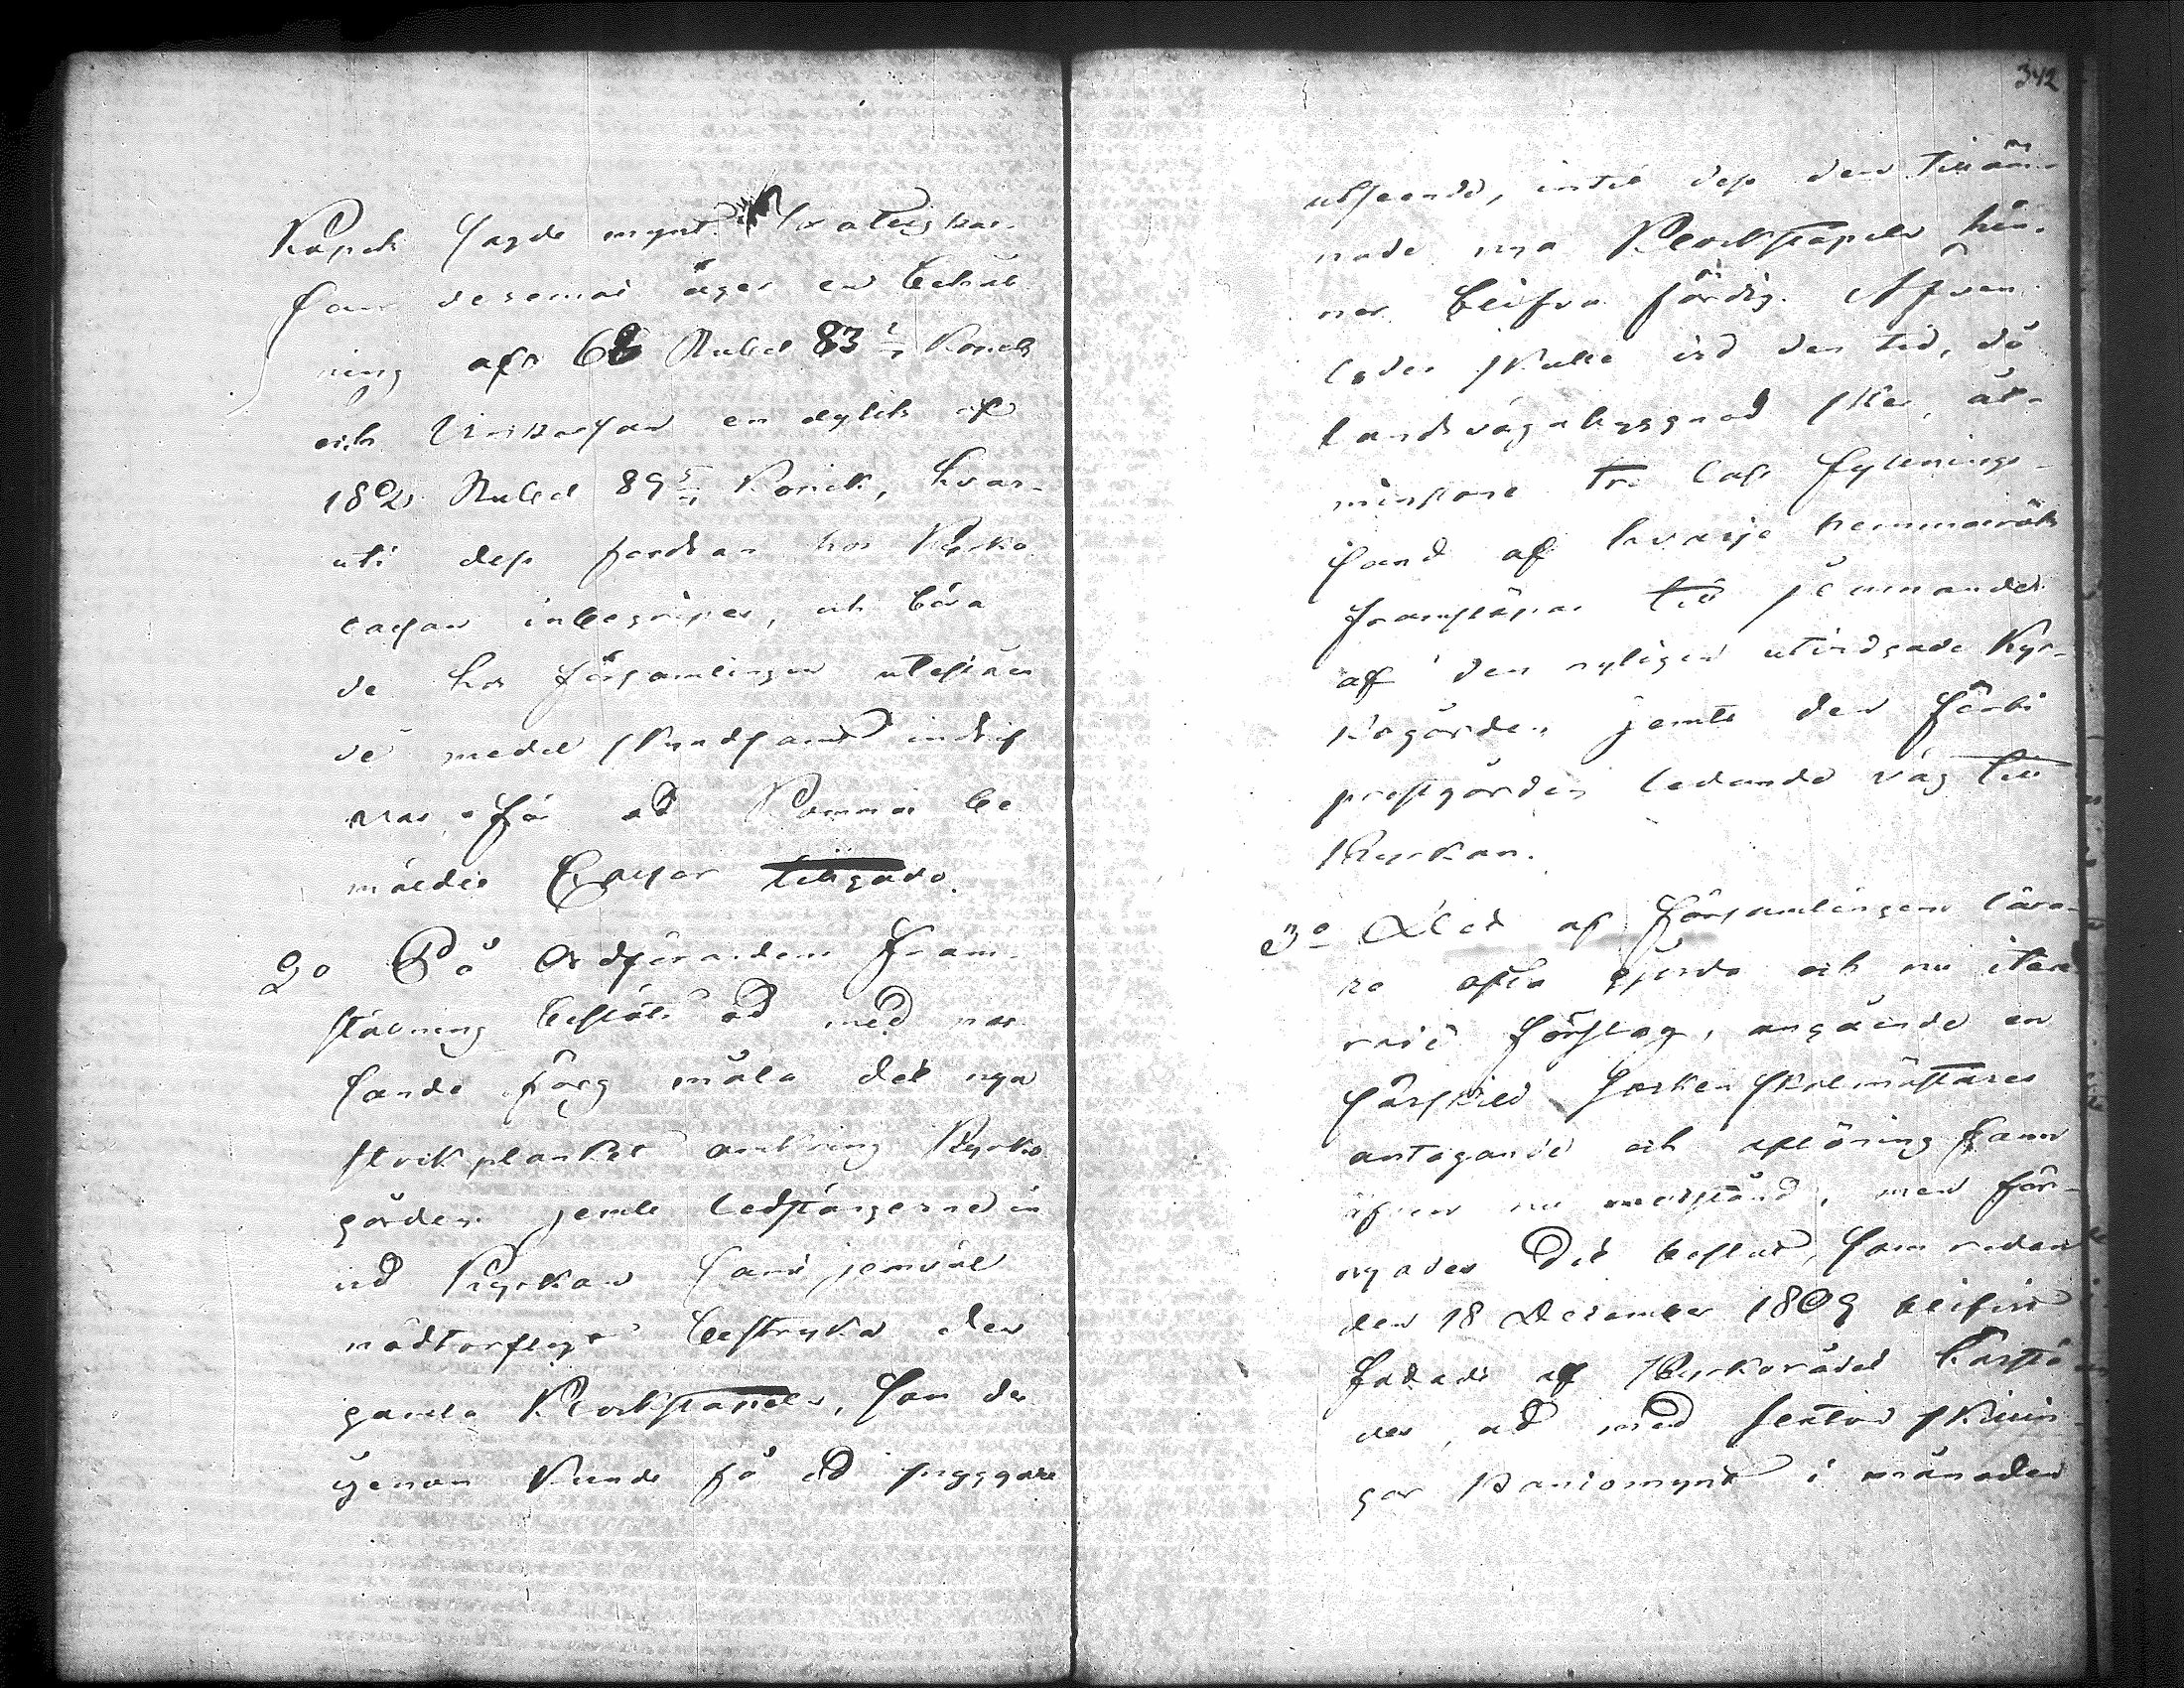 Kopek sagde mynt. Fattigkas-
san deremot äger en behåll-
ning af 68 Rubel 83 1/7 Kopek
och Vinkassan en dylik af
182 Rubel 89 5/7 Kopek, hvar-
uti dess fordran hos Kyrko
cassan inbegripes, och böra
de hos församlingen utestäen
de medel skyndsamt indrif
vas för at komma be
mälde Cassor tillgodo.
2o På Ordförandens fram-
ställning beslöts at med pas-
sande färg måla det nya
stockplanket omkring Kyrko
gården jemte ledstängerne in
vid Kyrkan samt jemväl
nödtorfteligt bestryka den
gamla Klockstapeln, som der-
igenom kunde få et snyggare
342
utseende, intil dess den tilläm-
nade nya Klockstapeln hin-
ner blifva färdig. Äfven-
ledes skulle vid den tid, då
landsvägabyggnad sker, åt-
minstone tre lass fyllnings-
sand af hvarje hemman
framsläpas till jämnandet
af den nyligen utvidgade Kyr-
kogården jemte den förbi
prestgården ledande väg till
Kyrkan.
3o Det af Församlingens lära-
re ofta gjorda och nu itere-
rade förslag, angående en
särskild Socken skolmästares
antagande och aflöning fann
äfven nu motstånd, men för-
nyades Det beslut, som redan
den 18 December 1809 blifvit
fattadt af Kyrkorådet
des, at med sexton skillin-
gar Bancomynt i månaden